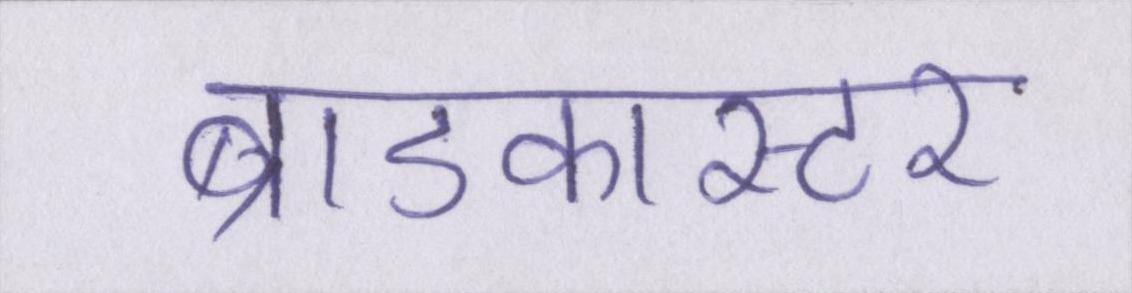 ब्राडकास्टर